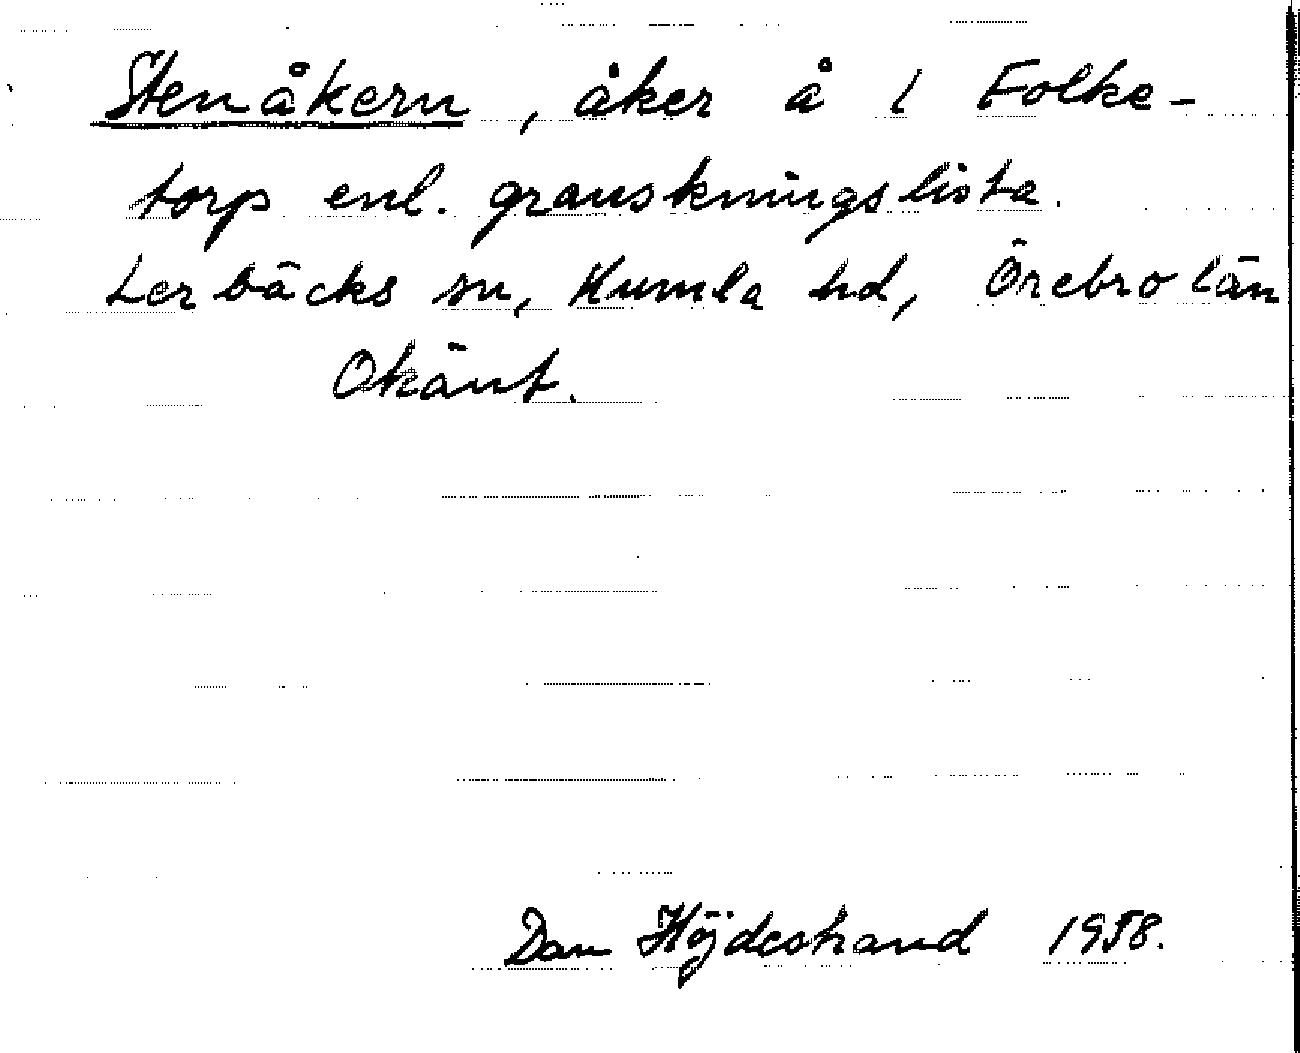 Stenåkern, åker å 1 Folke-
torp enl. granskningslista.
Lerbäcks sn, Kumla hd, Örebro län
Okänt.
Dan Höjdestrand 1958.